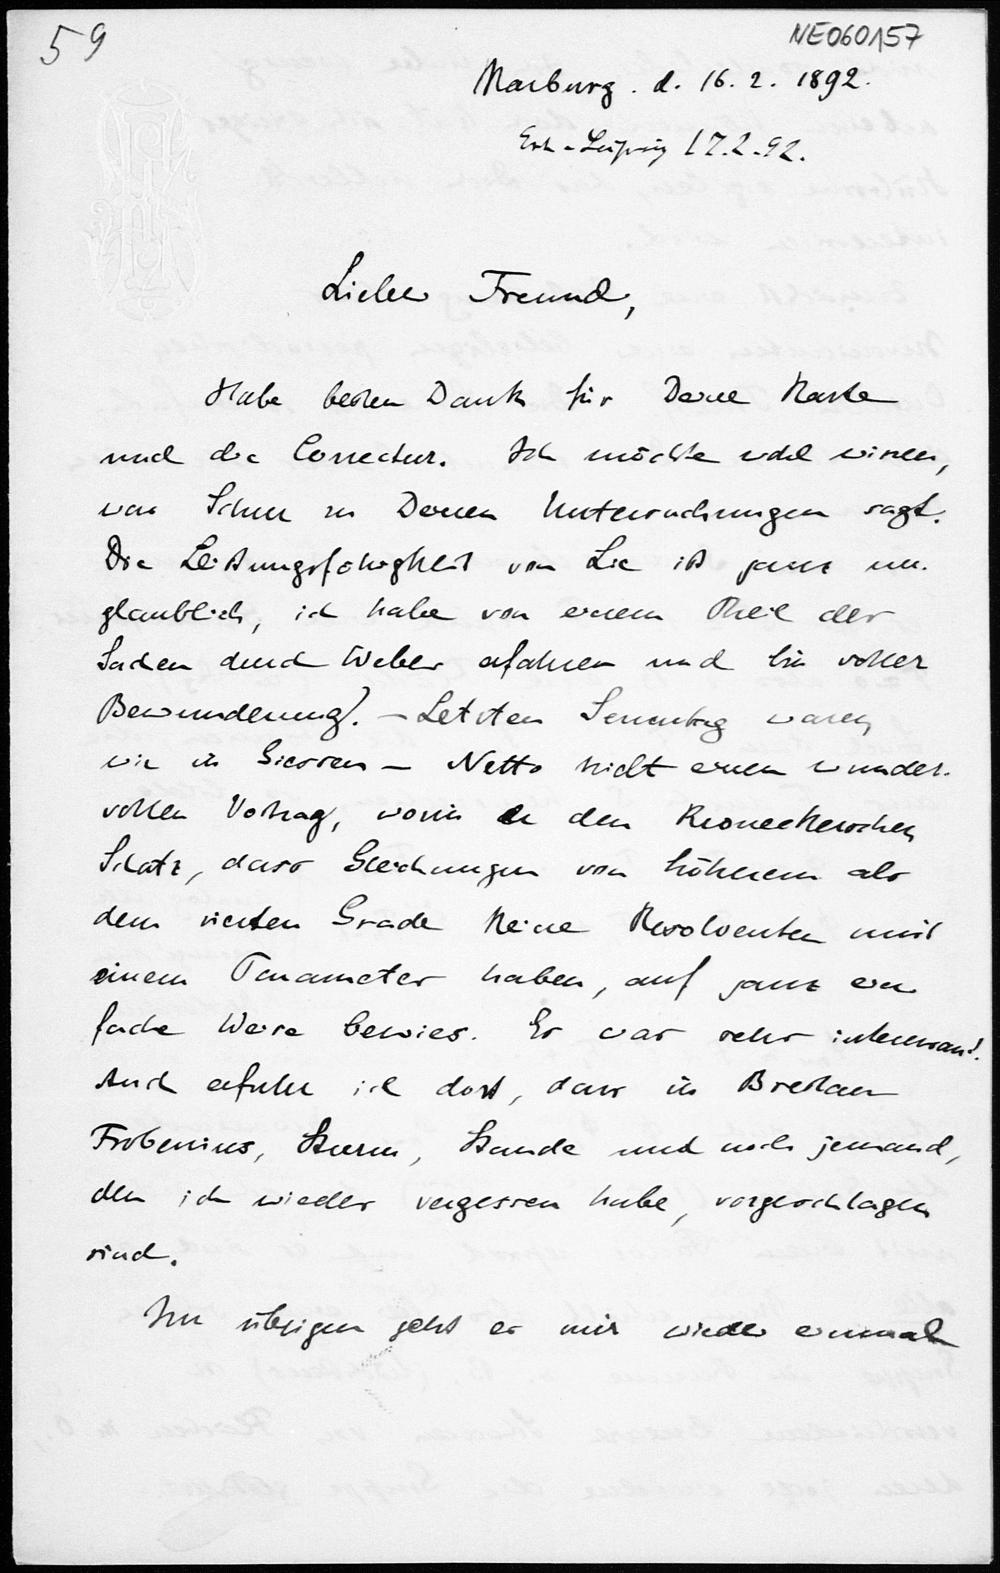 59
NE060157
Marburg. d. 16. 2. 1892.
Erh. Leipzig 17.2.92.
Lieber Freund,
Habe besten Dank für Deine Karte
und die Correctur. Ich möchte wohl wissen,
was Schur zu Deinen Untersuchungen sagt.
Die Leistungsfähigkeit von Lie ist ganz un-
glaublich, ich habe von einem Theil der
Sachen durch Weber erfahren und bin voller
Bewunderung. – Letzten Sonntag waren
wir in Giessen – Netto hielt einen wunder-
vollen Vortrag, worin er den Kroneckerschen
Satz, dass Gleichungen von höherem als
dem vierten Grade keine Resolventen mit
einem Parameter haben, auf ganz ein
fache Weise bewies. Es war sehr interessant.
Auch erfuhr ich dort, dass in Breslau
Frobenius, Sturm, Staude und noch jemand,
den ich wieder vergessen habe, vorgeschlagen
sind.
Im übrigen geht es mir wieder einmal